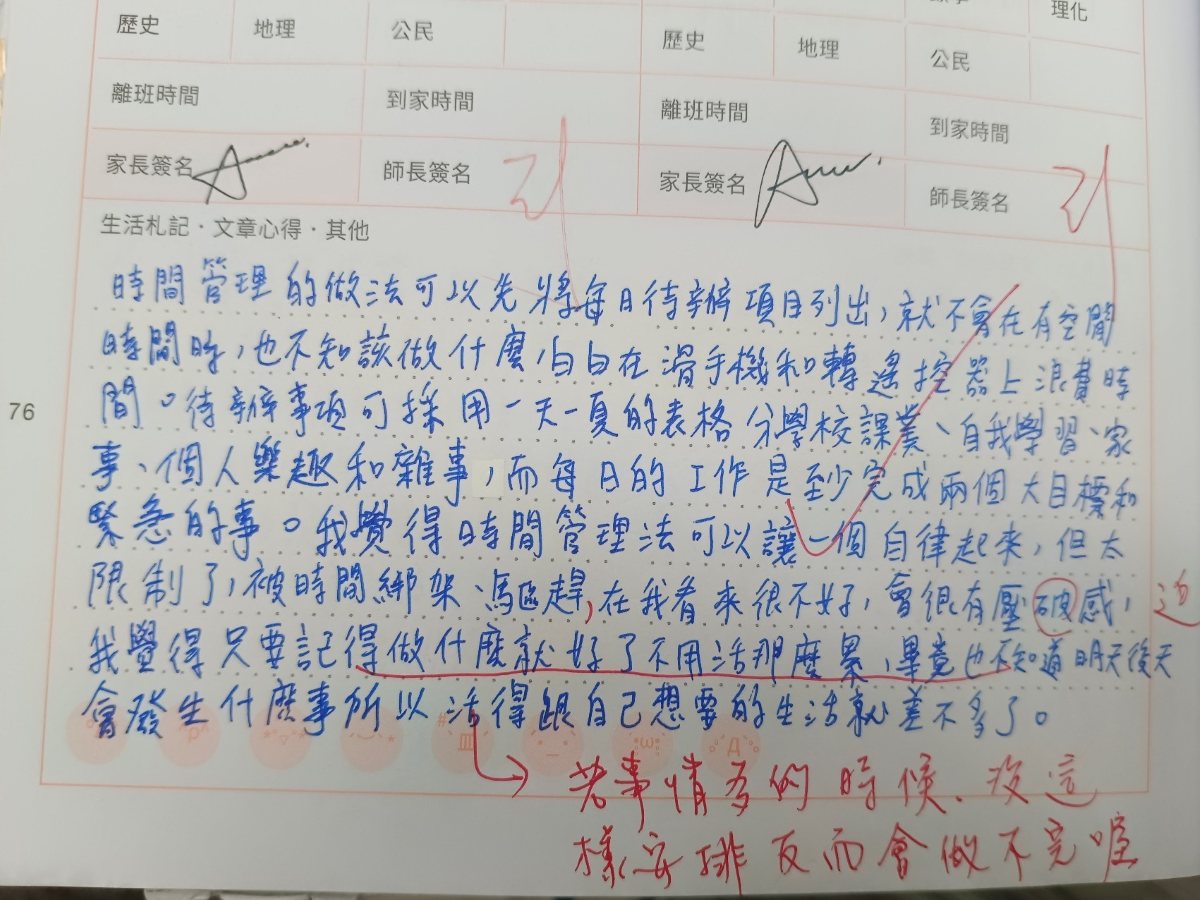 歷史 地理 公民 歷史 地理 公民 理化
離班時間 到家時間 離班時間 到家時間
家長簽名 師長簽名 家長簽名 師長簽名
生活札記・文章心得・其他
時間管理的做法可以先將每日待辦項目列出,就不會在有空閒
時間時,也不知該做什麼,白白在滑手機和轉遙控器上浪費時
76
間。待辦事項可採用一天一頁的表格分學校課業、自我學習、家
事、個人樂趣和雜事,而每日的工作是至少完成兩個大目標和
緊急的事。我覺得時間管理法可以讓一個自律起來,但太
限制了,被時間綁架、驅趕,在我看來很不好,會很有壓破感,迫
我覺得只要記得做什麼就好了不用活那麼累,畢竟也不知道明天後天
會發生什麼事所以活得跟自己想要的生活就差不多了。
若事情多的時候、沒這
樣安排反而會做不完喔